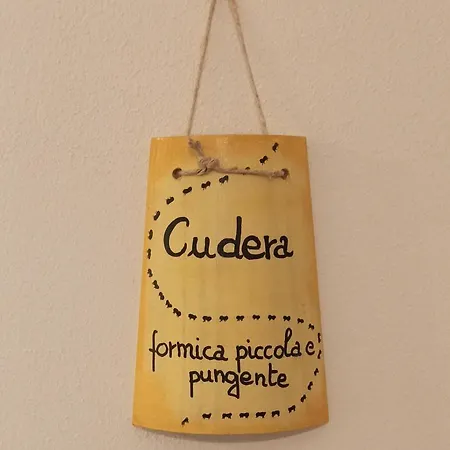 Cudera
formica piccola e
pungente